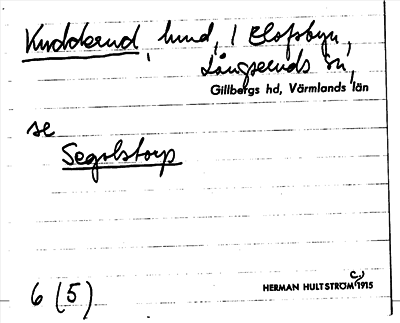 Kudderud, hmd, i Elofsbyn,
Långseruds sn,
Gillbergs hd, Värmlands län
se
Segolstorp
6 (5)
HERMAN HULTSTRÖM (C.) 1915